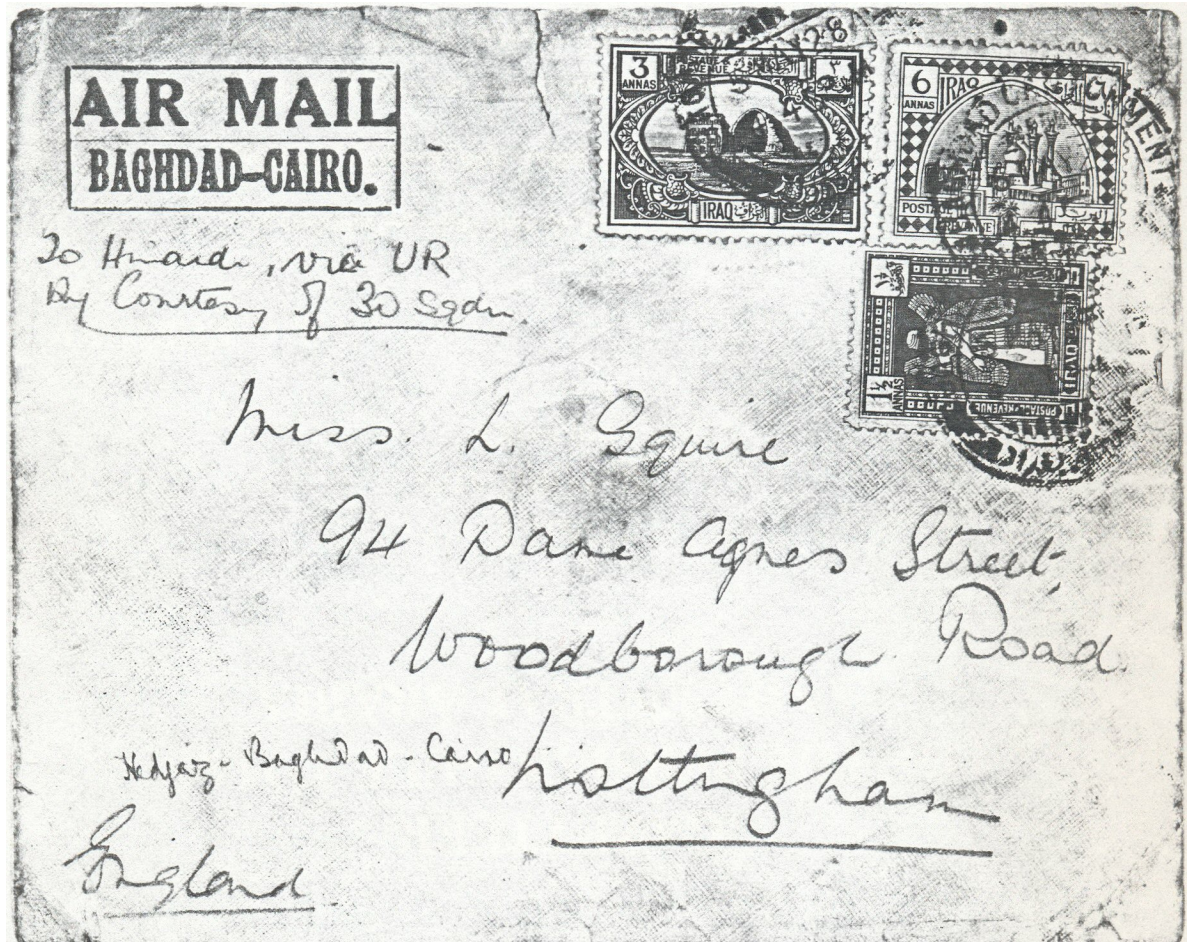 AIR MAIL
BAGHDAD–CAIRO.
3
ANNAS
IRAQ
6
ANNAS
IRAQ
POSTAGE
REVENUE
1½
ANNAS
POSTAGE & REVENUE
IRAQ
BAGHDAD
To Hinaidi, via UR
By Courtesy of 30 Sqdn.
Miss. L. Squire
94 Dame Agnes Street,
Woodborough Road.
Nottingham
Hedjaz - Baghdad - Cairo
England